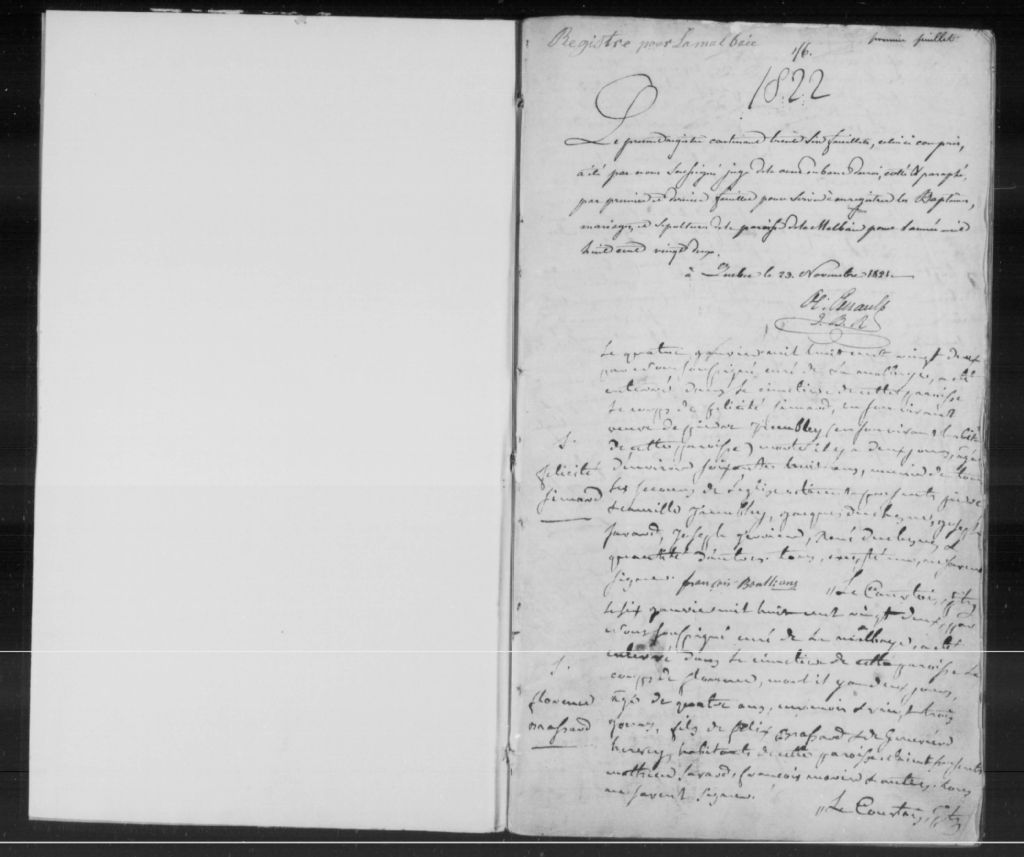 Registre pour Lamalbaie
premier feuillet
1822
Le present registre contenant trente six feuillets, celui ci compris,
a été par nous Soussigné juge de la cour du banc du roi, cotté & paraphé,
par premier et dernier feuillet pour servir à enregistrer les Baptêmes,
mariages et Sepultures de la paroisse de la Malbaie pour l'année mil
huit cent vingt deux.
à Quebec le 23. Novembre 1821.
Ol. Perrault
J. B. R
Le quatre janvier mil huit cent vingt deux
par nous soussigné curé de La malbaye, a été
enterré dans le cimetière de cette paroisse
le corps de felicité Simard, en son vivant
veuve de Tremblay (en son vivant
de cette paroisse) morte il y a deux jours, agée
d'environ soixante huit ans, munie de tous
les secours de l'église étaient presents
Tremblay, jacques duchesne, joseph
Savard, joseph René duchesne, &
quantité d'autres tous
signer. françois Boulliane Le Courtois, ptre
S.
felicité
Simard
le six janvier mil huit cent vingt deux, par
nous soussigné curé de La malbaye, a été
enterré dans le cimetière de cette paroisse le
corps de florence, mort il y a deux jours,
agé de quatre ans, un mois & vingt trois
jours, fils de felix Brassard & de Geneviève
hervey, habitants de cette paroisse étaient presents
mathieu Savard, françois & autres, tous
ne savent signer.
Le Courtois, ptre
S.
florence
Brassard